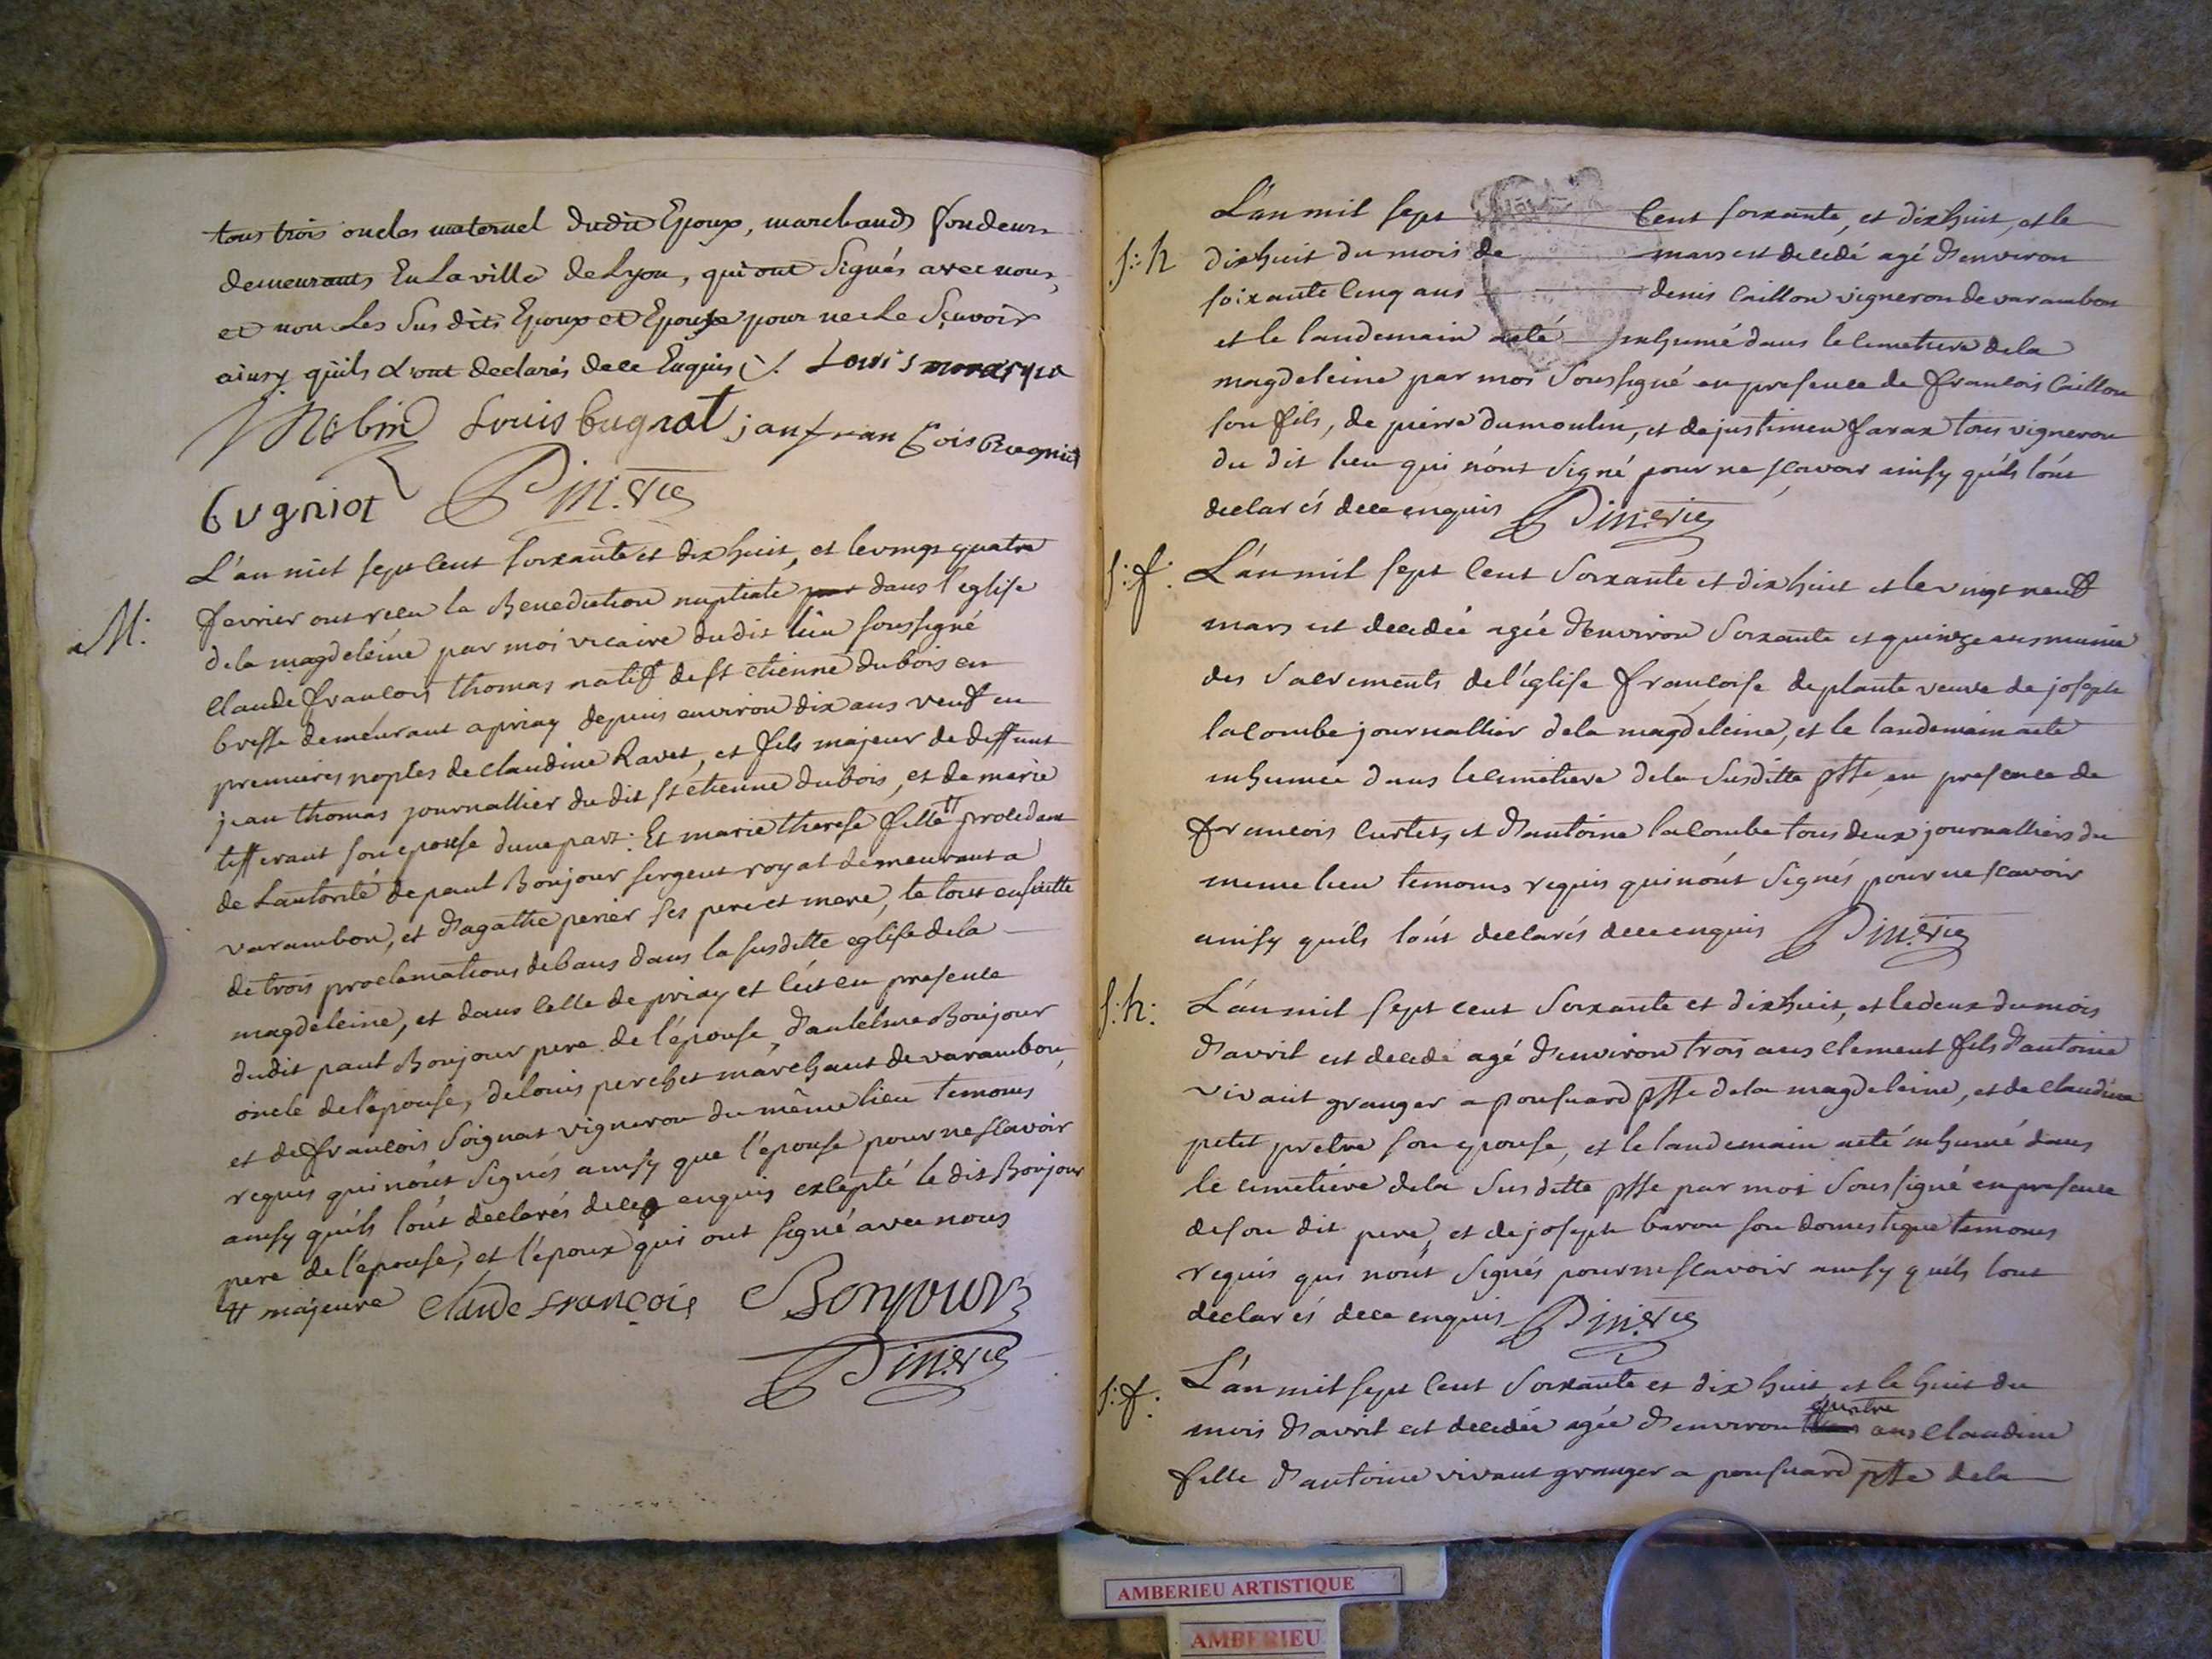 tous trois oncles maternel dudit Epoux, marchands fondeurs
demeurants En La ville de Lyon, qui ont Signés avec nous,
et non Les Sus dits Epoux et Epouse pour ne Le Sçavoir
ainsy qu'ils L'ont declarés de ce Enquis ./. Louis
Louis bugnot jan fran çois Bugniot
bugniot Pin. vic
L'an mil sept cent soixante et dix huit, et le vingt quatre
M: fevrier ont recu la Benediction nuptiale dans l'eglise
dela magdeleine par moi vicaire dudit lieu soussigné
claude francois thomas natif de st etienne dubois en
bresse demeurant a priay depuis environ dix ans veuf en
premieres nopces de claudine Ravet, et fils majeur de deffunt
jean thomas journallier du dit st etienne dubois, et de marie
tisserant son epouse dune part. Et marie therese fille # procedant
de Lautorité de paul Bonjour sergent royal demeurant a
varambon, et d'agathe perier ses pere et mere, le tout ensuitte
de trois proclamations de bans dans la susditte eglise dela
magdeleine, et dans celle de priay et c'est en presence
dudit paul Bonjour pere de l'épouse, d'antelme Bonjour
oncle de l'epouse, de louis perchet marchant de varambon,
et de francois Soignat vigneron du même lieu temoins
requis qui n'ont Signés ainsy que l'épouse pour ne scavoir
ainsy qu'ils l'ont declarés de ce enquis excepté le dit Bonjour
pere de l'épouse, et l'époux qui ont signé avec nous
# majeure claude françois Bonjour
Pin. vic
L'an mil sept cent soixante, et dix huit, et le
s: h dix huit du mois de mars est decedé agé d'environ
soixante cinq ans denis caillon vigneron de varambon
et le landemain a eté inhumé dans le cimetiere de la
magdeleine par moi Soussigné en presence de francois caillon
son fils, de pierre dumoulin, et de justinien farax tous vigneron
du dit lieu qui n'ont Signé pour ne scavoir ainsy qu'ils l'ont
declarés de ce enquis Pin. vic
s: f: L'an mil sept cent Soixante et dix huit et le vingt neuf
mars est decedée agée d'environ Soixante et quinze ans munie
des Sacrements de l'église francoise deplante veuve de joseph
lacombe journallier dela magdeleine, et le landemain a eté
inhumée dans le cimetiere dela Susditte psse, en presence de
francois curtet, et d'antoine lacombe tous deux journalliers du
meme lieu temoins requis qui n'ont Signés pour ne scavoir
ainsy qu'ils l'ont declarés de ce enquis Pin. vic
s: h: L'an mil sept cent Soixante et dix huit, et le deux du mois
d'avril est decedé agé d'environ trois ans clement fils d'antoine
vivant granger a ponsuard psse dela magdeleine, et de claudine
petit pretre son epouse, et le landemain a eté inhumé dans
le cimetiére dela Sus ditte psse par moi Soussigné en presence
de son dit pere, et de joseph baron son domestique temoins
requis qui n'ont Signés pour ne scavoir ainsy qu'ils l'ont
déclarés de ce enquis Pin. vic
s: f: L'an mil sept cent Soixante et dix huit et le huit du
mois d'avril est decedée agée d'environ quatre ans claudine
fille d'antoine vivant granger a ponsuard psse dela
AMBERIEU ARTISTIQUE
AMBERIEU